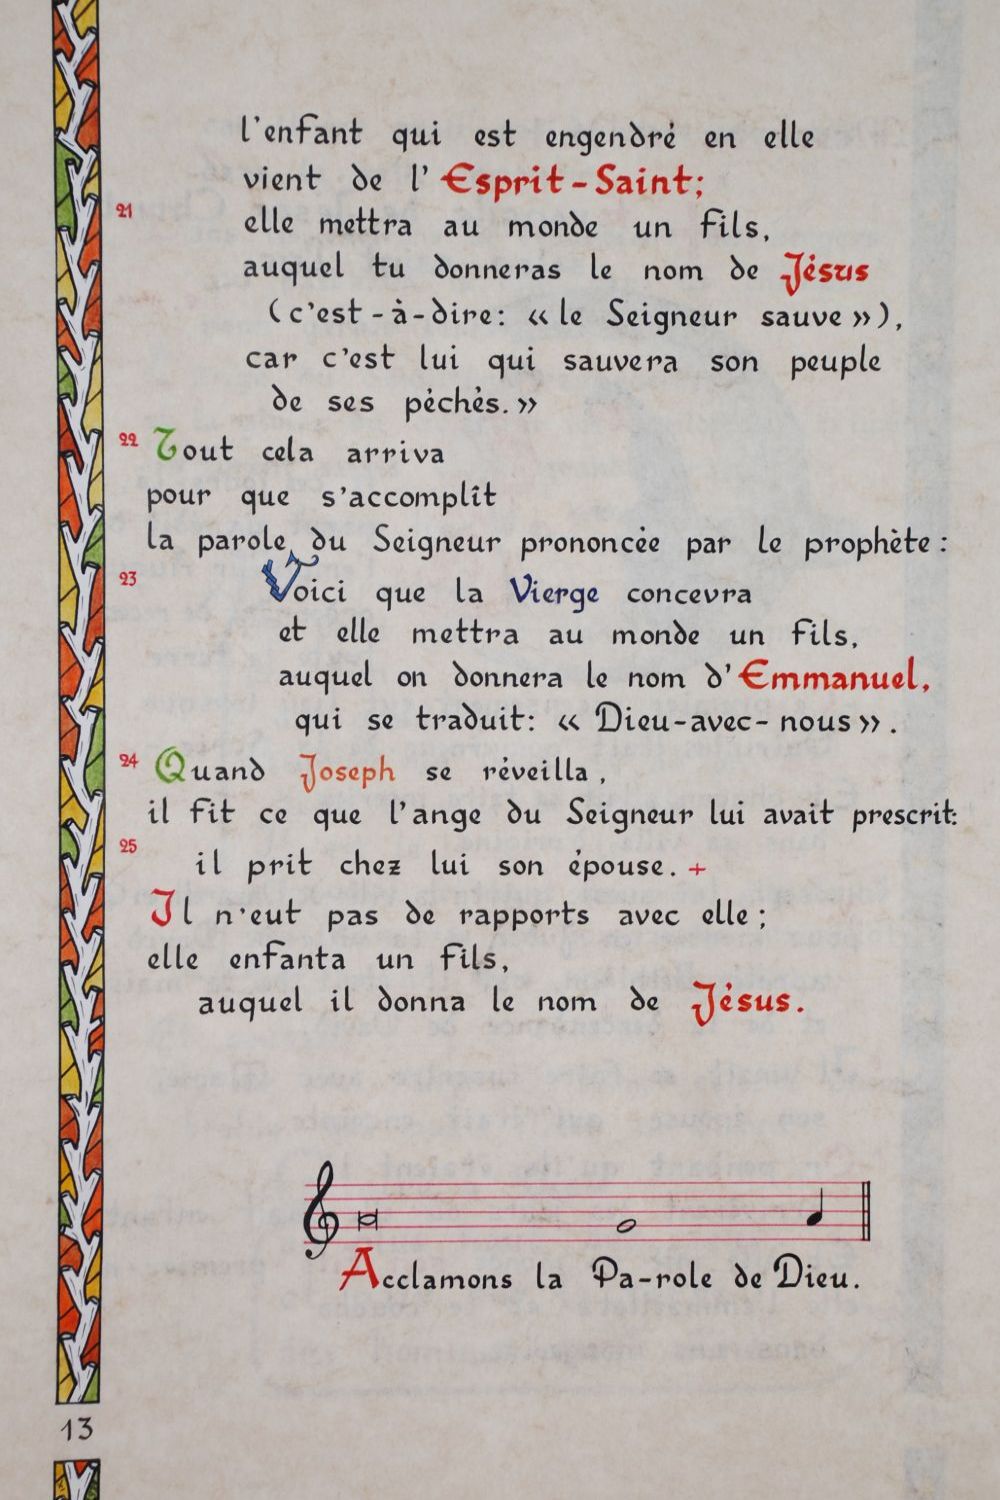 l'enfant qui est engendré en elle
vient de l'Esprit-Saint;
21 elle mettra au monde un fils,
auquel tu donneras le nom de Jésus
(c'est-à-dire: «le Seigneur sauve»),
car c'est lui qui sauvera son peuple
de ses péchés.»
22 Tout cela arriva
pour que s'accomplît
la parole du Seigneur prononcée par le prophète:
23 Voici que la Vierge concevra
et elle mettra au monde un fils,
auquel on donnera le nom d'Emmanuel,
qui se traduit: «Dieu-avec-nous».
24 Quand Joseph se réveilla,
il fit ce que l'ange du Seigneur lui avait prescrit:
il prit chez lui son épouse. +
25 Il n'eut pas de rapports avec elle;
elle enfanta un fils,
auquel il donna le nom de Jésus.
Acclamons la Pa-role de Dieu.
13